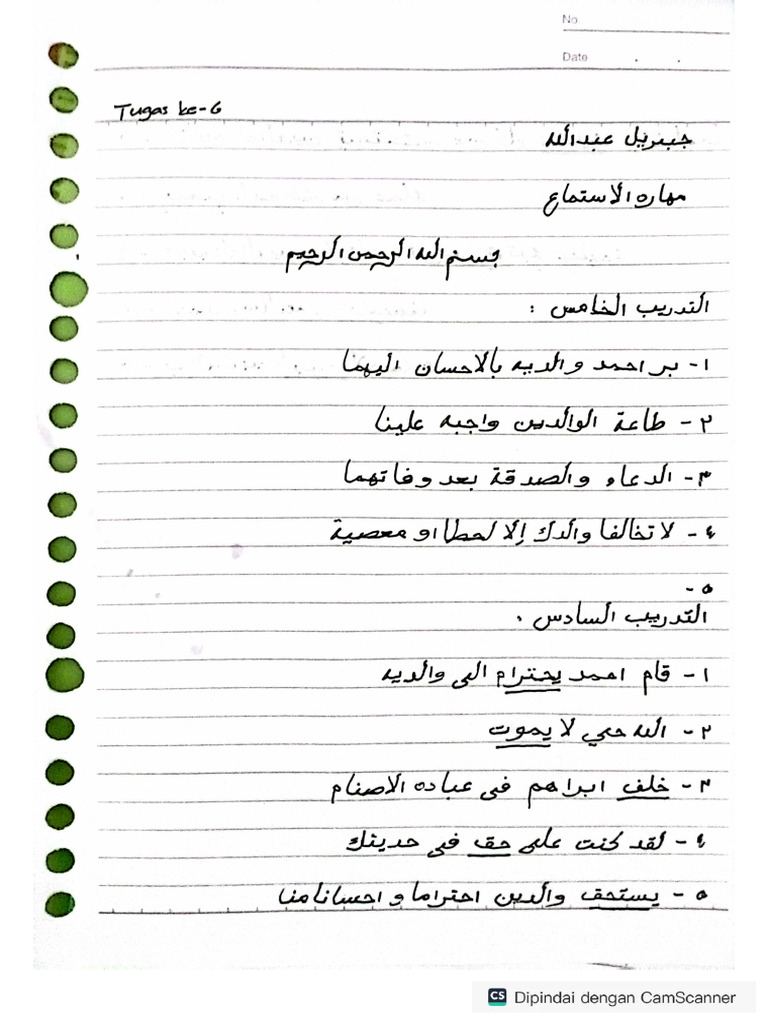 No.
Date
Tugas ke-6
جبريل عبدالله
مهاره الاستماع
بسم الله الرحمن الرحيم
التدريب الخامس :
١- بر احمد والديه بالاحسان اليهما
٢- طاعة الوالدين واجبه علينا
٣- الدعاء والصدقة بعد وفاتهما
٤- لا تخالفا والدك إلا لخطا او معصية
٥-
التدريب السادس .
١- قام احمد يحترام الى والديه
٢- الله حي لا يموت
٣- خلف ابراهم في عباده الاصنام
٤- لقد كنت على حق في حديثك
٥- يستحق والدين احتراما و احسانا منا
CS Dipindai dengan CamScanner